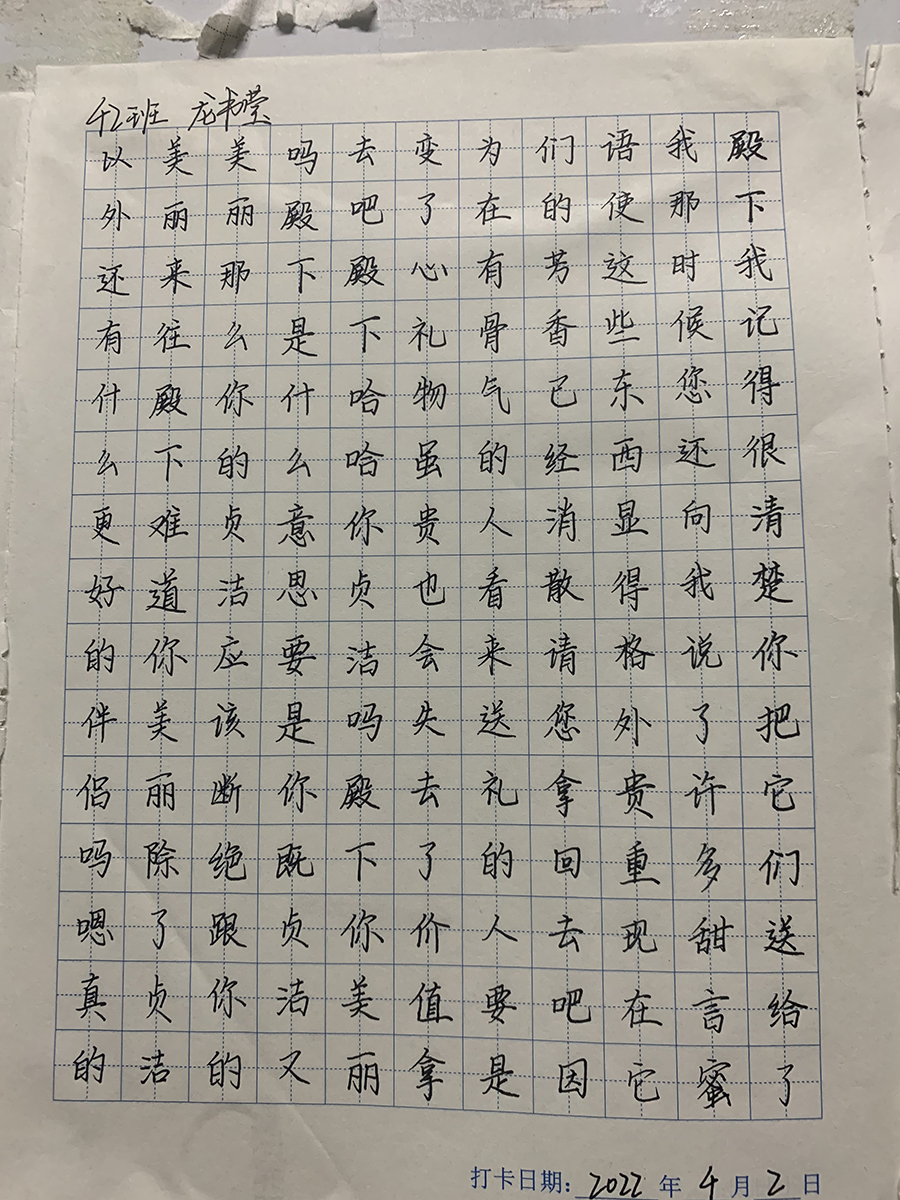 42班 龙书莹
殿下我记得很清楚你把它们送给了
我那时候您还向我说了许多甜言蜜
语使这些东西显得格外贵重现在它
们的芳香已经消散请您拿回去吧因
为在有骨气的人看来送礼的人要是
变了心礼物虽贵也会失去了价值拿
去吧殿下哈哈你贞洁吗殿下你美丽
吗殿下是什么意思要是你既贞洁又
美丽那么你的贞洁应该断绝跟你的
美丽来往殿下难道你美丽除了贞洁
以外还有什么更好的伴侣吗嗯真的
打卡日期：2022 年 4 月 2 日